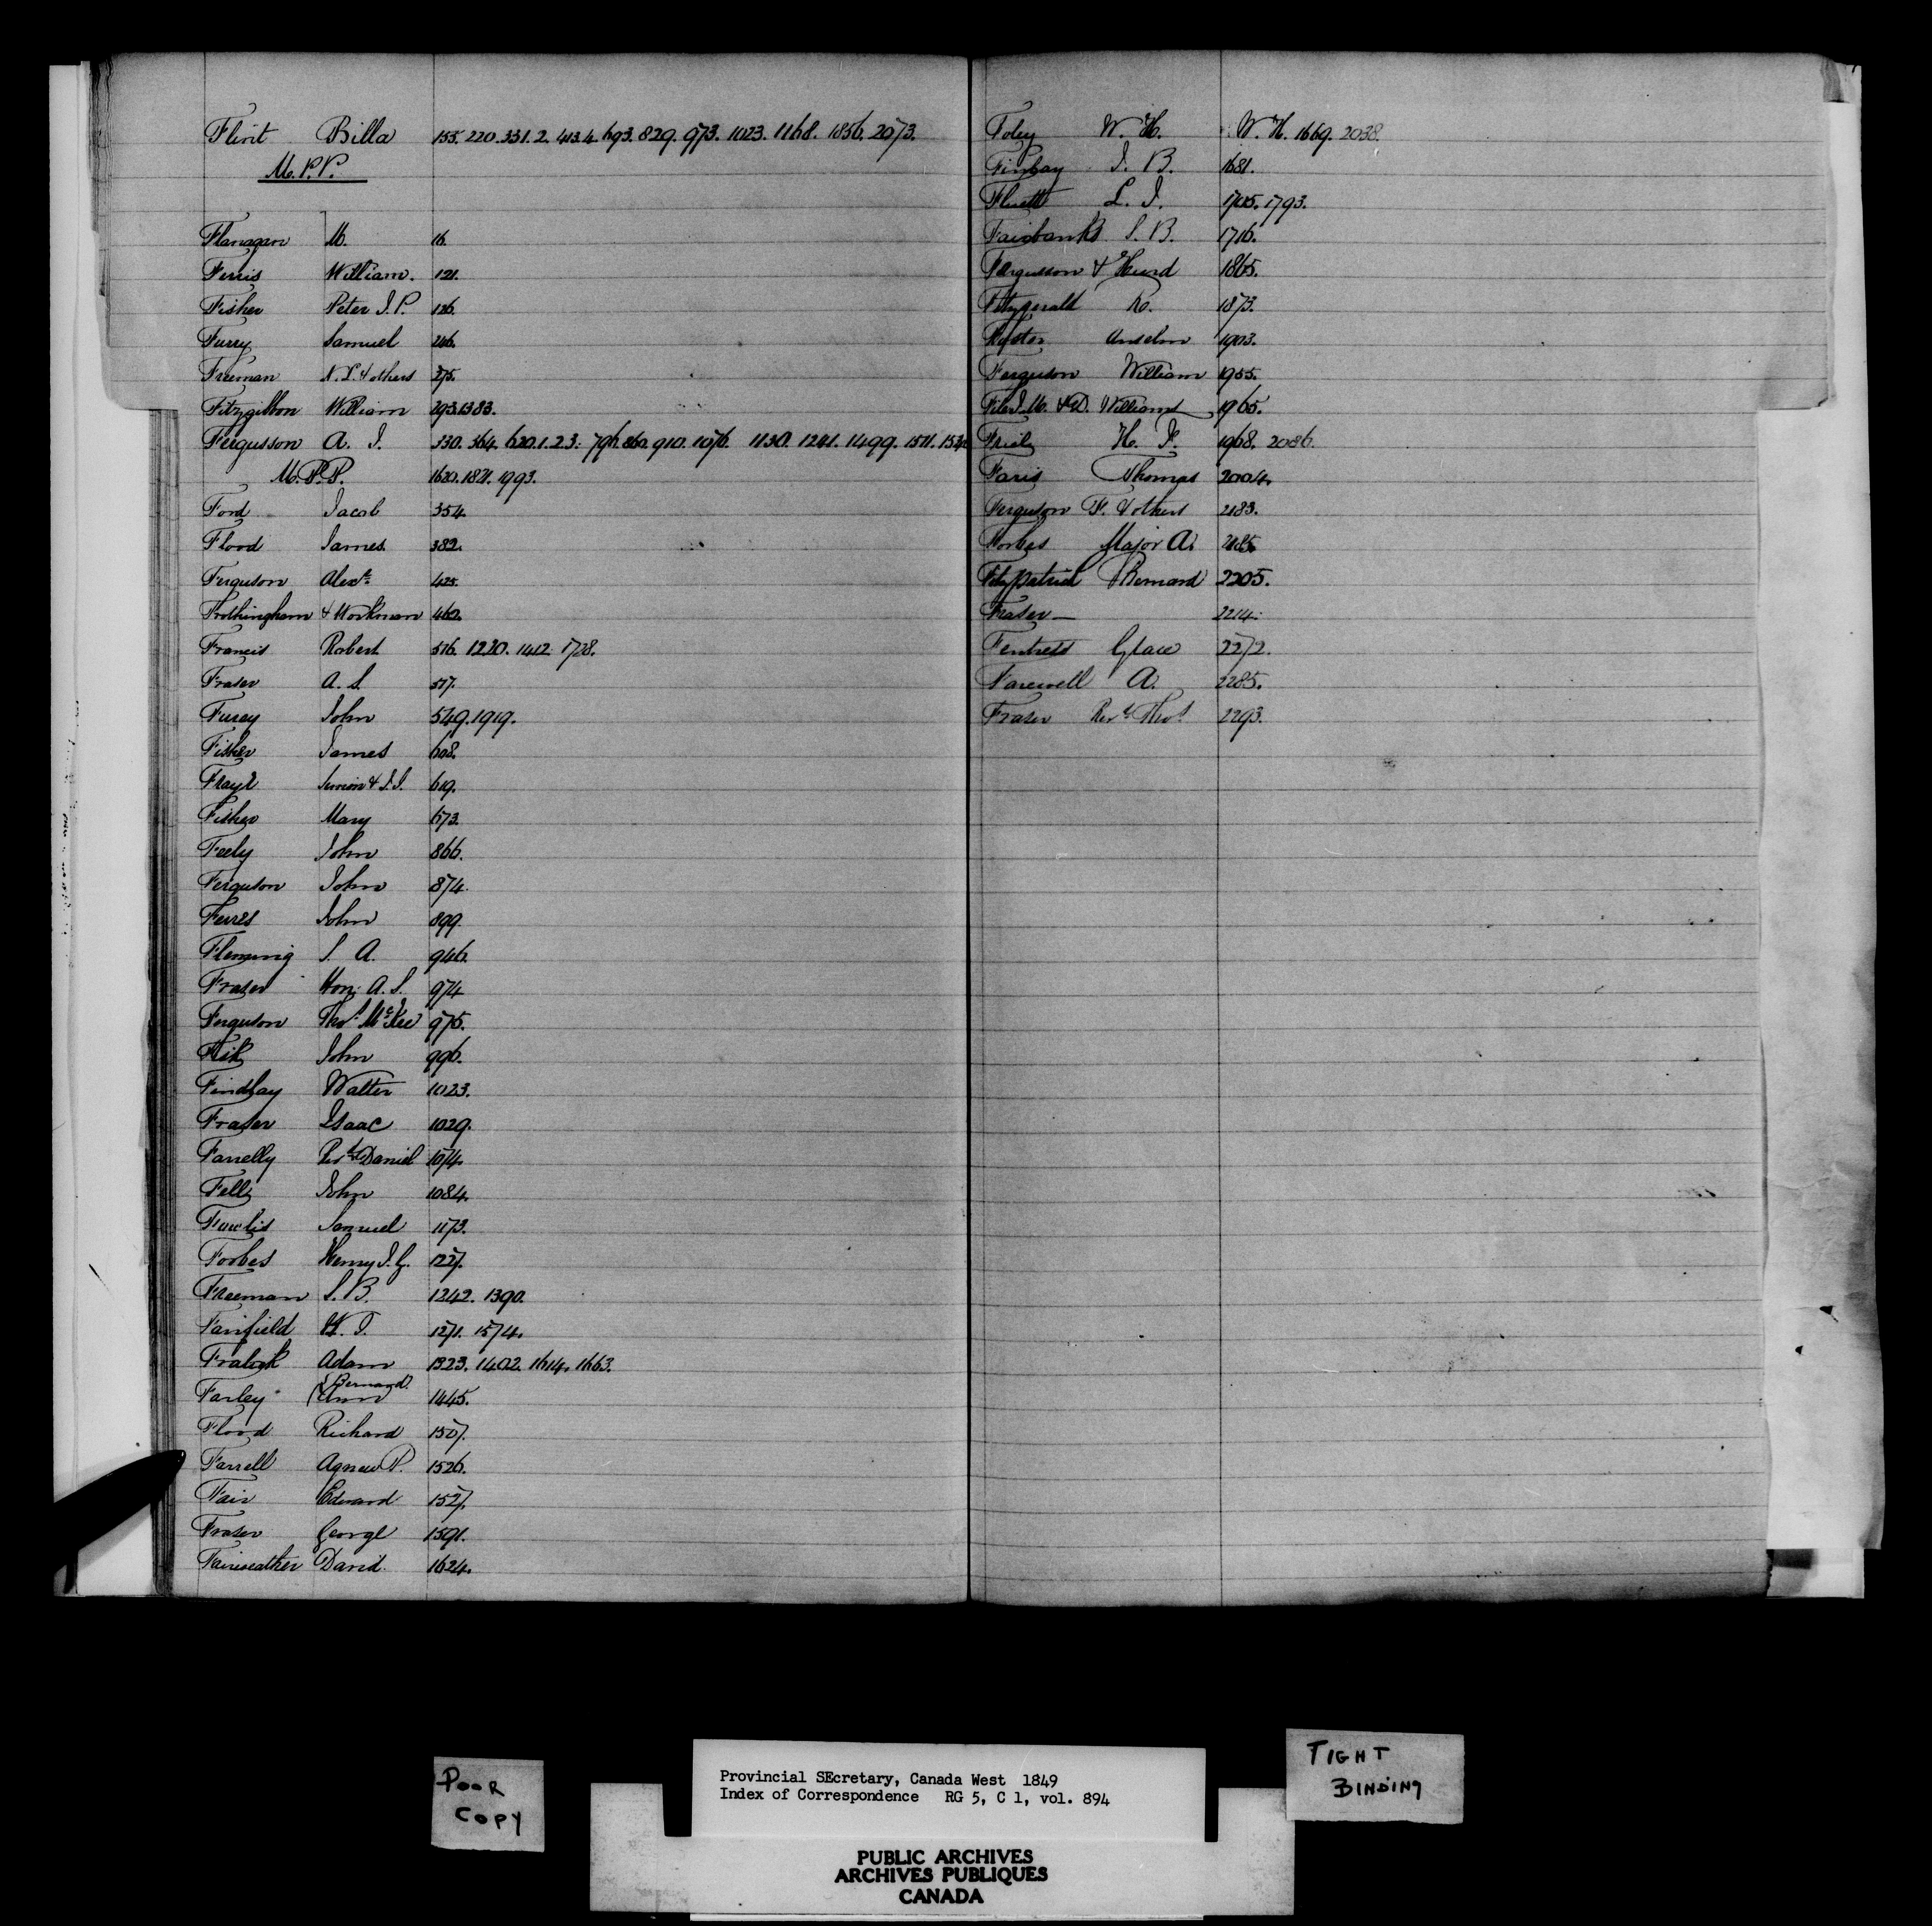 Flint Billa 155. 220. 331. 2. 413. 4. 693. 829. 973. 1023. 1168. 1856. 2073.
M.P.P.
Flanagan M. 16.
Ferris William. 121.
Fisher Peter J. P. 126.
Furry Samuel 246.
Freeman & others 275.
Fitzgibbon William 293. 1383.
Fergusson A. J. 330. 364. 620. 1. 2. 3. 796. 860. 910. 1076. 1130. 1241. 1499. 1511.
M.P.P. 1620. 1821. 1993.
Ford Jacob 354.
Flood James 382.
Ferguson Alexr 425.
Frothingham & Workman 462.
Francis Robert 516. 1220. 1412. 1728.
Fraser A. S. 517.
Furey John 549. 1919.
Fisher James 608.
Simon & J. J. 619.
Fisher Mary 673.
Feely John 866.
Ferguson John 874.
Ferres John 899.
Fleming S. A. 946.
Fraser Hon. A. S. 974
Ferguson Thos McKee 975.
John 996.
Findlay Walter 1023.
Fraser Isaac 1029.
Farrelly Revd Daniel 1074.
Fell John 1084.
Samuel 1173.
Forbes Henry J. G. 1227.
Freeman S. B. 1242. 1390.
Fairfield W. J. 1271. 1574.
Fralick Adam 1323. 1402. 1614. 1663.
Farley { Bernard
Ann 1445.
Flood Richard 1507.
Farrell Agnew P. 1526.
Fair Edward 1527.
Fraser George 1591.
Fairweather David. 1624.
Foley W. H. W. H. 1669. 2038.
Finlay J. B. 1681.
L. J. 1705. 1793.
Fairbanks S. B. 1716.
Fergusson & Hurd 1865.
Fitzgerald R. 1873.
Foster Anselm 1903.
Ferguson William 1955.
William 1965.
Friel H. J. 1968. 2086.
Faris Thomas 2004.
Ferguson F. & others 2183.
Forbes Major A. 2185
Fitzpatrick Bernard 2205.
Fraser — 2214.
Fentress 2272.
Farewell A. 2285.
Fraser Revd Thos 2293.
POOR
COPY
Provincial SEcretary, Canada West 1849
Index of Correspondence RG 5, C 1, vol. 894
TIGHT
BINDING
PUBLIC ARCHIVES
ARCHIVES PUBLIQUES
CANADA